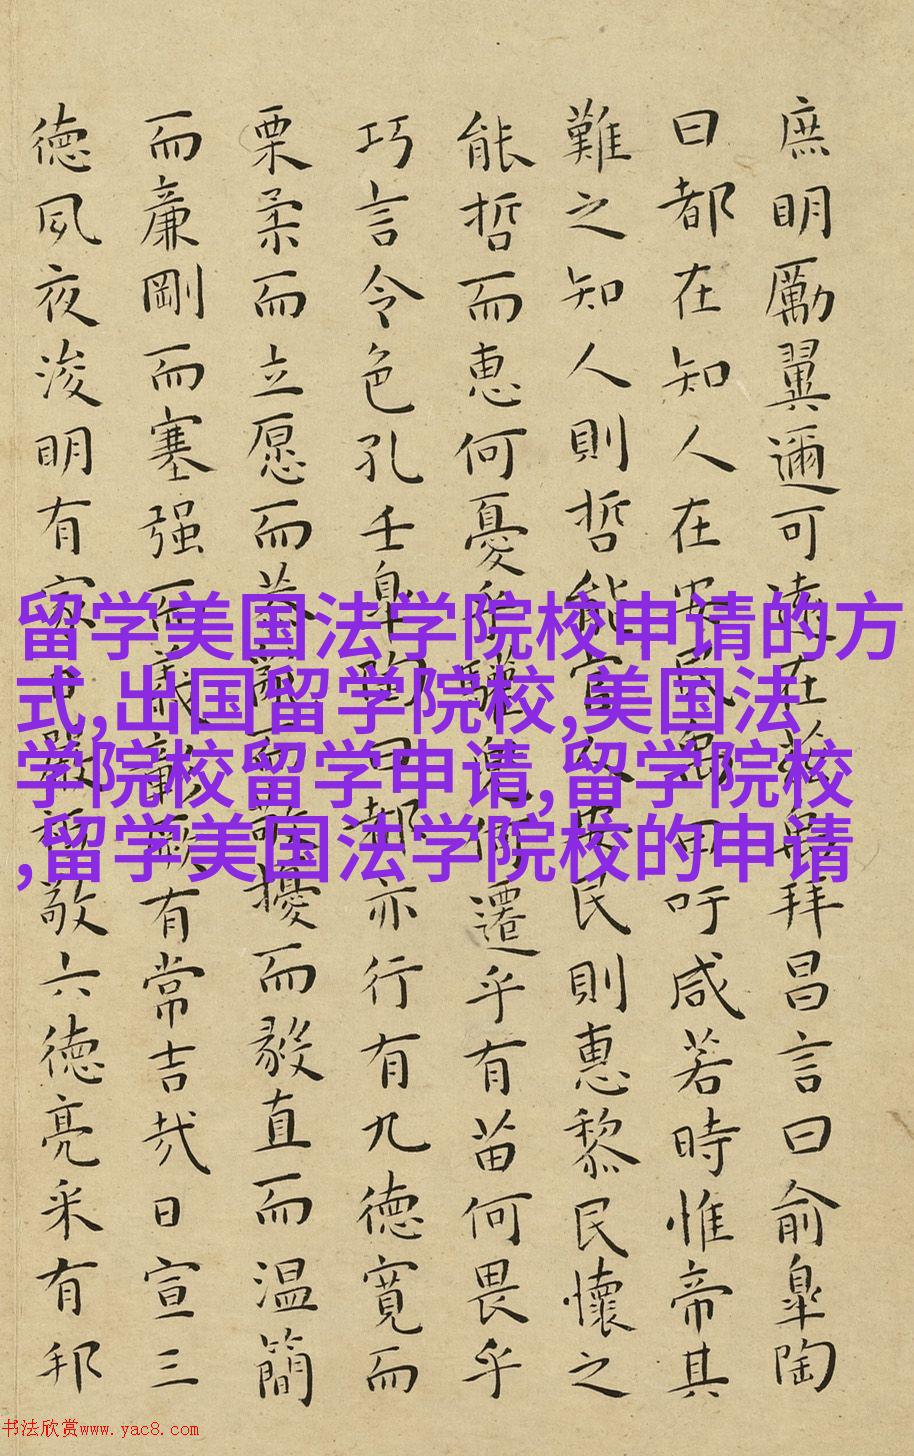 庶明勵翼邇可遠在茲禹拜昌言曰俞皐陶
曰都在知人在安民禹曰吁咸若時惟帝其
難之知人則哲能官人安民則惠黎民懷之
能哲而恵何憂乎驩兜何遷乎有苗何畏乎
巧言令色孔壬皐陶曰都亦行有九德寬而
栗柔而立愿而恭亂而敬擾而毅直而温簡
而廉剛而塞强而義彰厥有常吉哉日宣三
德夙夜浚明有家日嚴祗敬六德亮采有邦
留学美国法学院校申请的方
式,出国留学院校,美国法
学院校留学申请,留学院校
,留学美国法学院校的申请
书法欣赏www.yac8.com